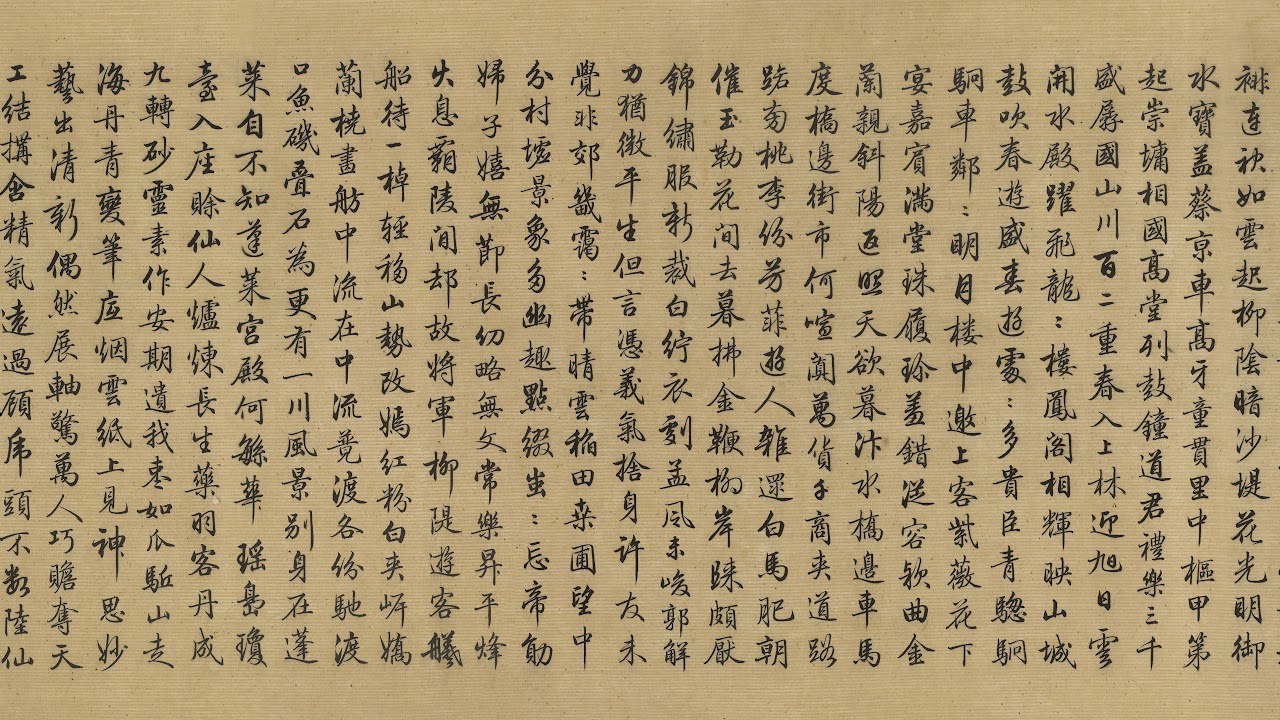 連袂如雲起柳陰暗沙堤花光明御
水寶盖蔡京車髙牙童貫里中樞甲第
起崇墉相國髙堂列鼓鐘道君禮樂三千
盛孱國山川百二重春入上林近旭日雲
開水殿躍飛龍:樓鳳閣相輝映山城
鼓吹春遊盛春遊處:多貴臣青驄駉
駉車鄰:明月楼中邀上客紫薇花下
宴嘉賓滿堂珠履珎盖錯從容欵曲金
蘭親斜陽返照天欲暮汴水橋邊車馬
度橋邊街市何喧闐萬貨千商夾道路
路旁桃李份芳菲遊人雜還白馬肥朝
催玉勒花间去暮拂金鞭柳岸頗厭
錦繡服新裁白紵衣劇孟風未峻郭解
力猶微平生但言憑義氣捨身許友未
覺非郊畿靄:帶晴雲稻田桒圃望中
分村墟景象多幽趣點綴出:忘帝勛
婦子嬉無節長幼略無文常樂昇平烽
火息霸陵间却故將軍柳隄遊客艤
船待一棹輕移山勢改嫣紅粉白夹岍嬌
蘭橈畫舫中流在中流競渡各份馳渡
口魚磯叠石為更有一川風景别身在蓬
莱自不知蓬莱宫殿何繇華瑶島瓊
臺入座賒仙人爐煉長生藥羽客丹成
九轉砂靈素作安期遺我枣如瓜駈山走
海丹青變筆底烟雲紙上見神思妙
藝出清新偶然展軸驚萬人巧瞻奪天
工結搆含精氣遠過顾虎頭不数陸仙